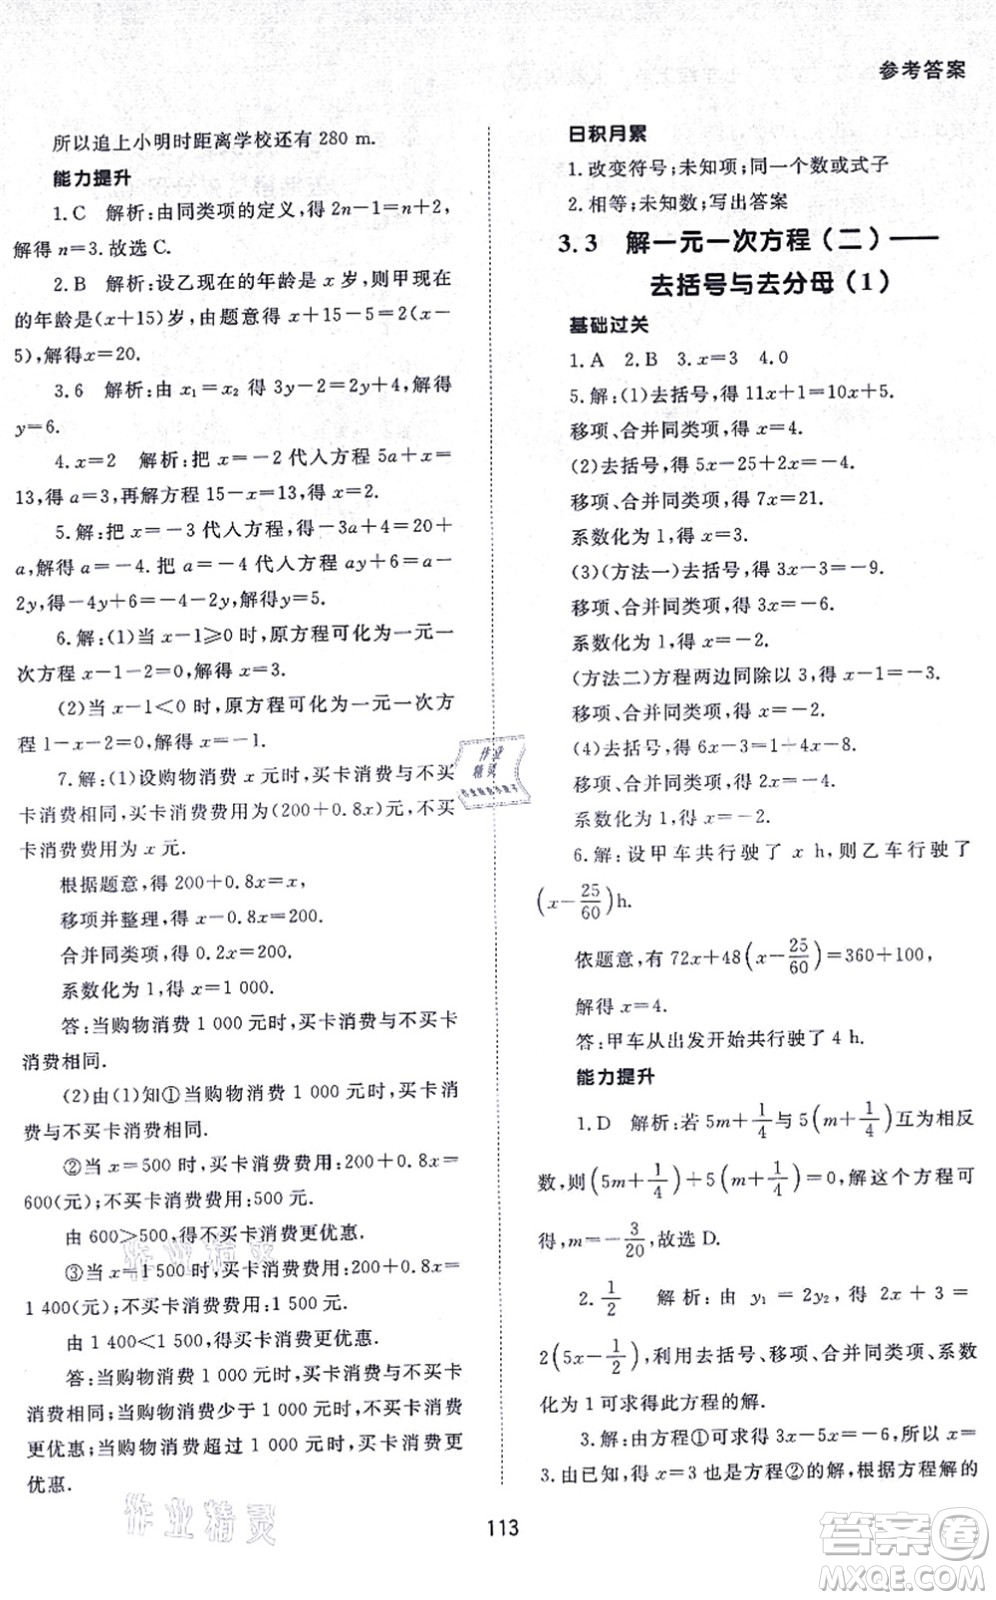 参考答案
所以追上小明时距离学校还有 280 m.
能力提升
1.C 解析:由同类项的定义,得 2n-1=n+2,
解得 n=3.故选 C.
2.B 解析:设乙现在的年龄是 x 岁,则甲现在
的年龄是(x+15)岁,由题意得 x+15-5=2(x-
5),解得 x=20.
3.6 解析:由 x₁=x₂ 得 3y-2=2y+4,解得
y=6.
4.x=2 解析:把 x=-2 代入方程 5a+x=
13,得 a=3,再解方程 15-x=13,得 x=2.
5.解:把 x=-3 代入方程,得-3a+4=20+
a,解得 a=-4.把 a=-4 代入方程 ay+6=a-
2y,得-4y+6=-4-2y,解得 y=5.
6.解:(1)当 x-1⩾0 时,原方程可化为一元一
次方程 x-1-2=0,解得 x=3.
(2)当 x-1<0 时,原方程可化为一元一次方程
1-x-2=0,解得 x=-1.
7.解:(1)设购物消费 x 元时,买卡消费与不买
卡消费相同,买卡消费费用为(200+0.8x)元,不买
卡消费费用为 x 元.
根据题意,得 200+0.8x=x,
移项并整理,得 x-0.8x=200.
合并同类项,得 0.2x=200.
系数化为 1,得 x=1 000.
答:当购物消费 1 000 元时,买卡消费与不买卡
消费相同.
(2)由(1)知①当购物消费 1 000 元时,买卡消
费与不买卡消费相同.
②当 x=500 时,买卡消费费用:200+0.8x=
600(元);不买卡消费费用:500 元.
由 600>500,得不买卡消费更优惠.
③当 x=1 500 时,买卡消费费用:200+0.8x=
1 400(元);不买卡消费费用:1 500 元.
由 1 400<1 500,得买卡消费更优惠.
答:当购物消费 1 000 元时,买卡消费与不买卡
消费相同;当购物消费少于 1 000 元时,不买卡消费
更优惠;当购物消费超过 1 000 元时,买卡消费更
优惠.
日积月累
1.改变符号;未知项;同一个数或式子
2.相等;未知数;写出答案
3.3 解一元一次方程(二)——
去括号与去分母(1)
基础过关
1.A 2.B 3.x=3 4.0
5.解:(1)去括号,得 11x+1=10x+5.
移项、合并同类项,得 x=4.
(2)去括号,得 5x-25+2x=-4.
移项、合并同类项,得 7x=21.
系数化为 1,得 x=3.
(3)(方法一)去括号,得 3x-3=-9.
移项、合并同类项,得 3x=-6.
系数化为 1,得 x=-2.
(方法二)方程两边同除以 3,得 x-1=-3.
移项、合并同类项,得 x=-2.
(4)去括号,得 6x-2=1+4x-8.
移项、合并同类项,得 2x=-5.
系数化为 1,得 x=-2.
6.解:设甲车共行驶了 x h,则乙车行驶了
(x-25/60)h.
依题意,有 72x+48(x-25/60)=360+100,
解得 x=4.
答:甲车从出发开始共行驶了 4 h.
能力提升
1.D 解析:若 5m+1/4与 5(m+1/4)互为相反
数,则(5m+1/4)+5(m+1/4)=0,解这个方程可
得,m=-3/20,故选 D.
2.1/2 解析:由 y₁ = 2y₂,得 2x + 3 =
2(5x-1/2),利用去括号、移项、合并同类项、系数
化为 1 可求得此方程的解.
3.解:由方程①可求得 3x-5x=-6,所以 x=
3.由已知,得 x=3 是方程②的解,根据方程解的
113
作业
精灵
作业精灵
作业精灵
答案卷
MXQE.COM